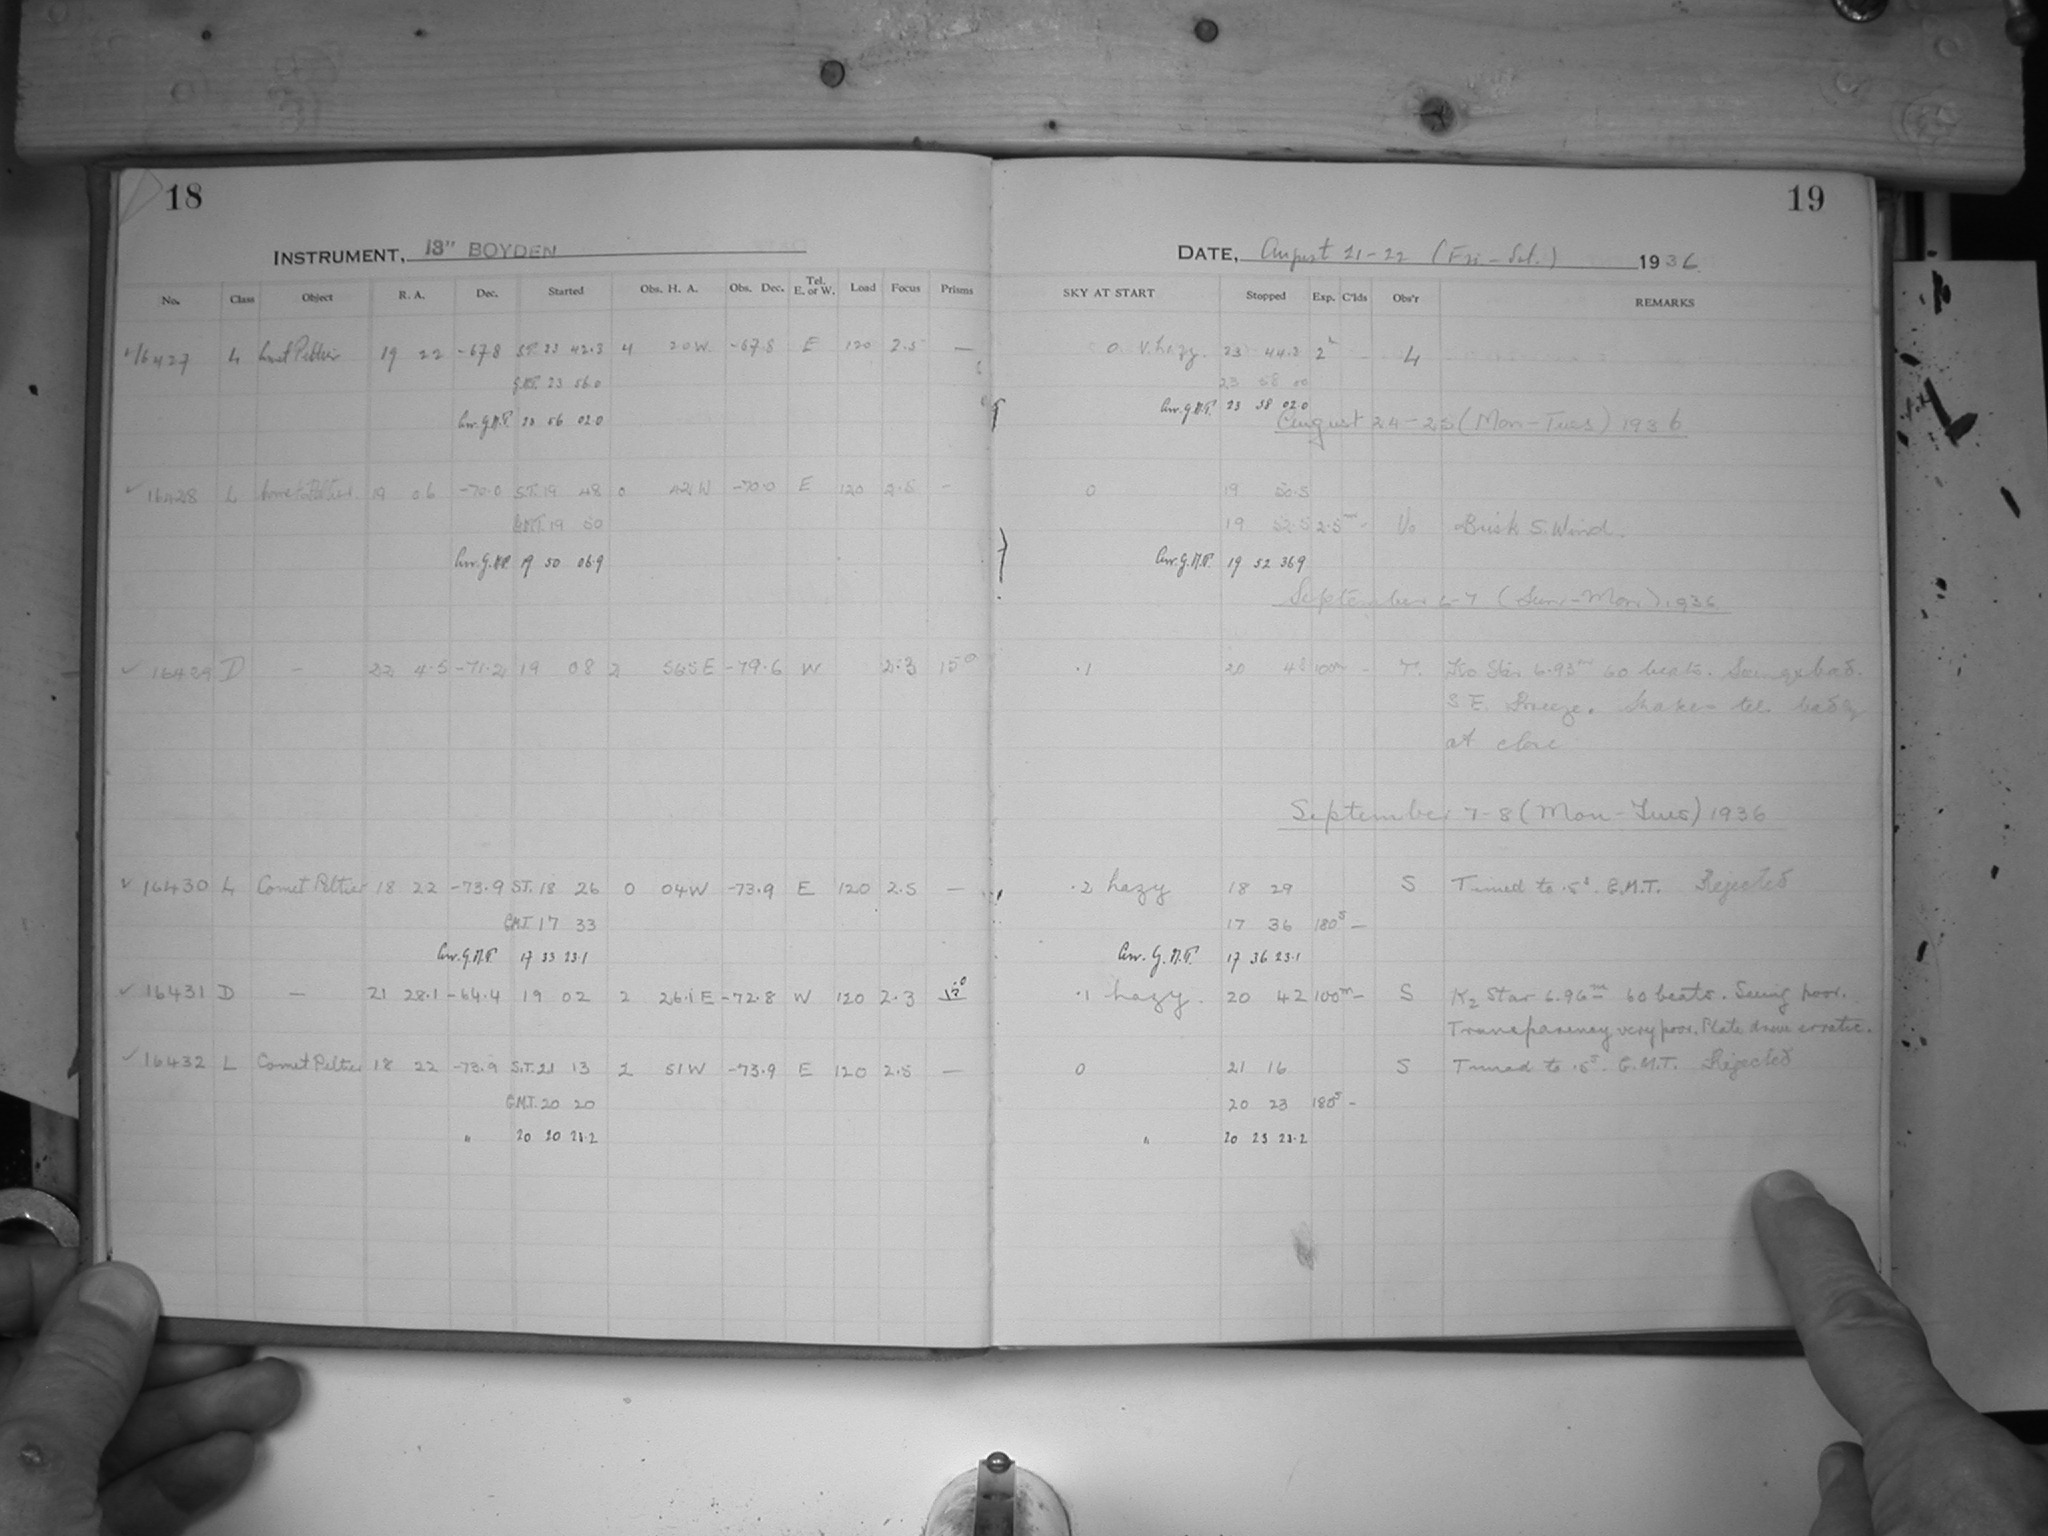 18
INSTRUMENT, 13" BOYDEN
No. Class Object R. A. Dec. Started Obs. H. A. Obs. Dec. Tel. E. or W. Load Focus Prisms
16427 L Comet Peltier 19 22 -67.8 S.T. 23 42.3 4 20W. -67.8 E 120 2.5 —
G.M.T. 23 56.0
Corr. G.M.T. 23 56 02.0
✓ 16428 L Comet Peltier 19 06 -70.0 S.T. 19 48 0 42W -70.0 E 120 2.5 -
G.M.T. 19 50
Corr. G.M.T. 19 50 06.9
✓ 16429 D - 22 4.5 -71.2 19 08 2 56.5E -79.6 W 2.3 15°
✓ 16430 L Comet Peltier 18 22 -73.9 S.T. 18 26 0 04W -73.9 E 120 2.5 —
G.M.T. 17 33
Corr. G.M.T. 17 33 23.1
✓ 16431 D — 21 28.1 -64.4 19 02 2 26.1E -72.8 W 120 2.3 15°
✓ 16432 L Comet Peltier 18 22 -73.9 S.T. 21 13 2 51W -73.9 E 120 2.5 —
G.M.T. 20 20
" 20 20 23.2
19
DATE, August 21-22 (Fri-Sat.) 1936
SKY AT START Stopped Exp. C'lds Obs'r REMARKS
0 V. hazy. 23 44.3 2 - L
23 58 00
Corr. G.M.T. 23 58 02.0
August 24-25 (Mon-Tues) 1936
0 19 50.5
19 52.5 2.5m - Brisk S. Wind.
Corr. G.M.T. 19 52 36.9
September 6-7 (Sun-Mon) 1936
.1 20 48 100m - T. K0 Star 6.93m 60 beats. Seeing bad.
S E. Breeze. Shakes tel. badly
at close
September 7-8 (Mon-Tues) 1936
.2 hazy 18 29 S Timed to .5s. G.M.T. Rejected
17 36 180s —
Corr. G.M.T. 17 36 23.1
.1 hazy. 20 42 100m - S K2 Star 6.96m 60 beats. Seeing poor.
Transparency very poor. Plate drive erratic.
0 21 16 S Timed to .5s. G.M.T. Rejected
20 23 180s -
" 20 23 23.2